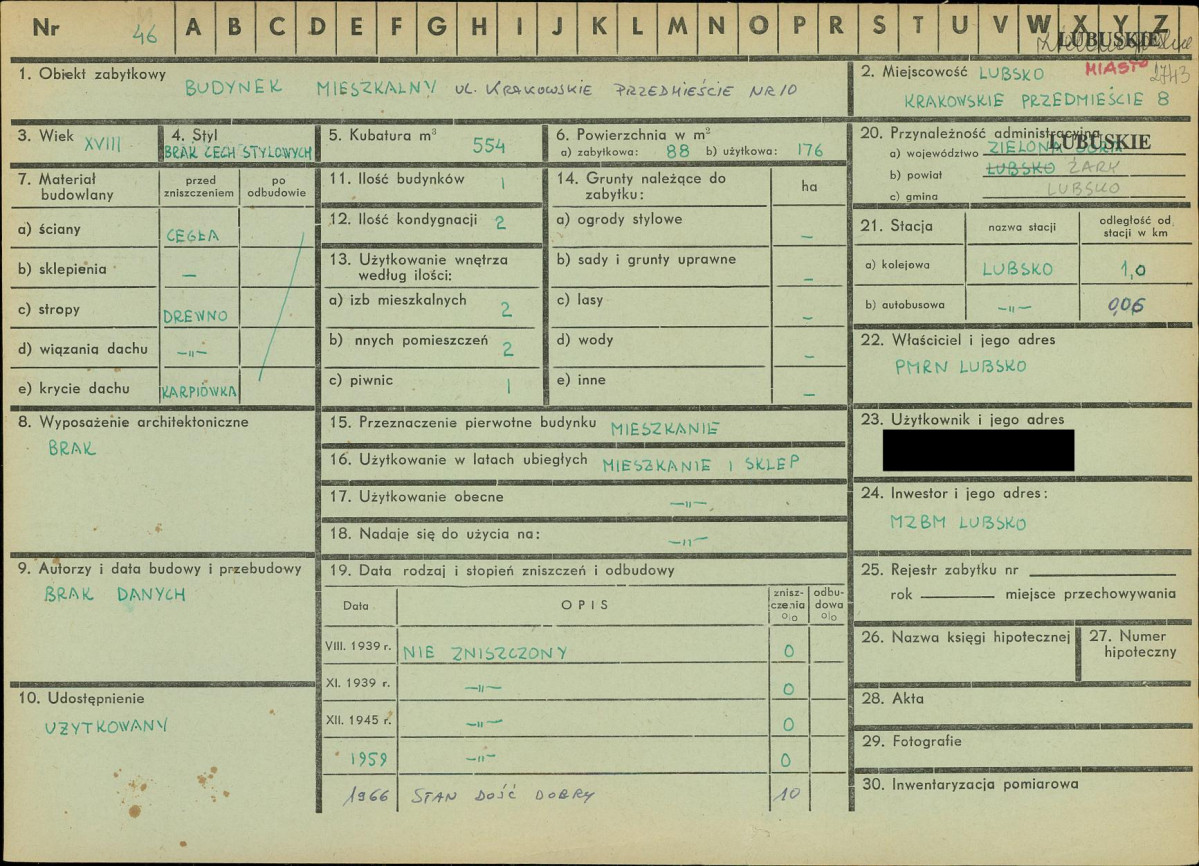 Nr 46 A B C D E F G H I J K L M N O P R S T U V W X Y Z
LUBUSKIE
1. Obiekt zabytkowy
BUDYNEK MIESZKALNY UL. KRAKOWSKIE PRZEDMIEŚCIE NR 10
2. Miejscowość LUBSKO MIASTO 2743
KRAKOWSKIE PRZEDMIEŚCIE 8
3. Wiek XVIII
4. Styl
BRAK CECH STYLOWYCH
5. Kubatura m³
554
6. Powierzchnia w m²
a) zabytkowa: 88 b) użytkowa: 176
20. Przynależność administracyjna
LUBUSKIE
a) województwo ZIELONA GÓRA
b) powiat LUBSKO ŻARY
c) gmina LUBSKO
7. Materiał budowlany
przed zniszczeniem
po odbudowie
a) ściany CEGŁA
b) sklepienia —
c) stropy DREWNO
d) wiązania dachu —"—
e) krycie dachu KARPIÓWKA
11. Ilość budynków 1
12. Ilość kondygnacji 2
13. Użytkowanie wnętrza
według ilości:
a) izb mieszkalnych 2
b) nnych pomieszczeń 2
c) piwnic 1
14. Grunty należące do
zabytku:
ha
a) ogrody stylowe —
b) sady i grunty uprawne —
c) lasy —
d) wody —
e) inne —
21. Stacja
nazwa stacji
odległość od
stacji w km
a) kolejowa LUBSKO 1,0
b) autobusowa —"— 0,06
22. Właściciel i jego adres
PMRN LUBSKO
8. Wyposażenie architektoniczne
BRAK
15. Przeznaczenie pierwotne budynku MIESZKANIE
16. Użytkowanie w latach ubiegłych MIESZKANIE I SKLEP
17. Użytkowanie obecne —"—
18. Nadaje się do użycia na: —"—
23. Użytkownik i jego adres
24. Inwestor i jego adres:
MZBM LUBSKO
9. Autorzy i data budowy i przebudowy
BRAK DANYCH
10. Udostępnienie
UŻYTKOWANY
19. Data rodzaj i stopień zniszczeń i odbudowy
Data
OPIS
znisz-
czenia
o|o
odbu-
dowa
o|o
VIII. 1939 r. NIE ZNISZCZONY 0
XI. 1939 r. —"— 0
XII. 1945 r. —"— 0
1959 —"— 0
1966 STAN DOŚĆ DOBRY 10
25. Rejestr zabytku nr
rok miejsce przechowywania
26. Nazwa księgi hipotecznej
27. Numer
hipoteczny
28. Akta
29. Fotografie
30. Inwentaryzacja pomiarowa